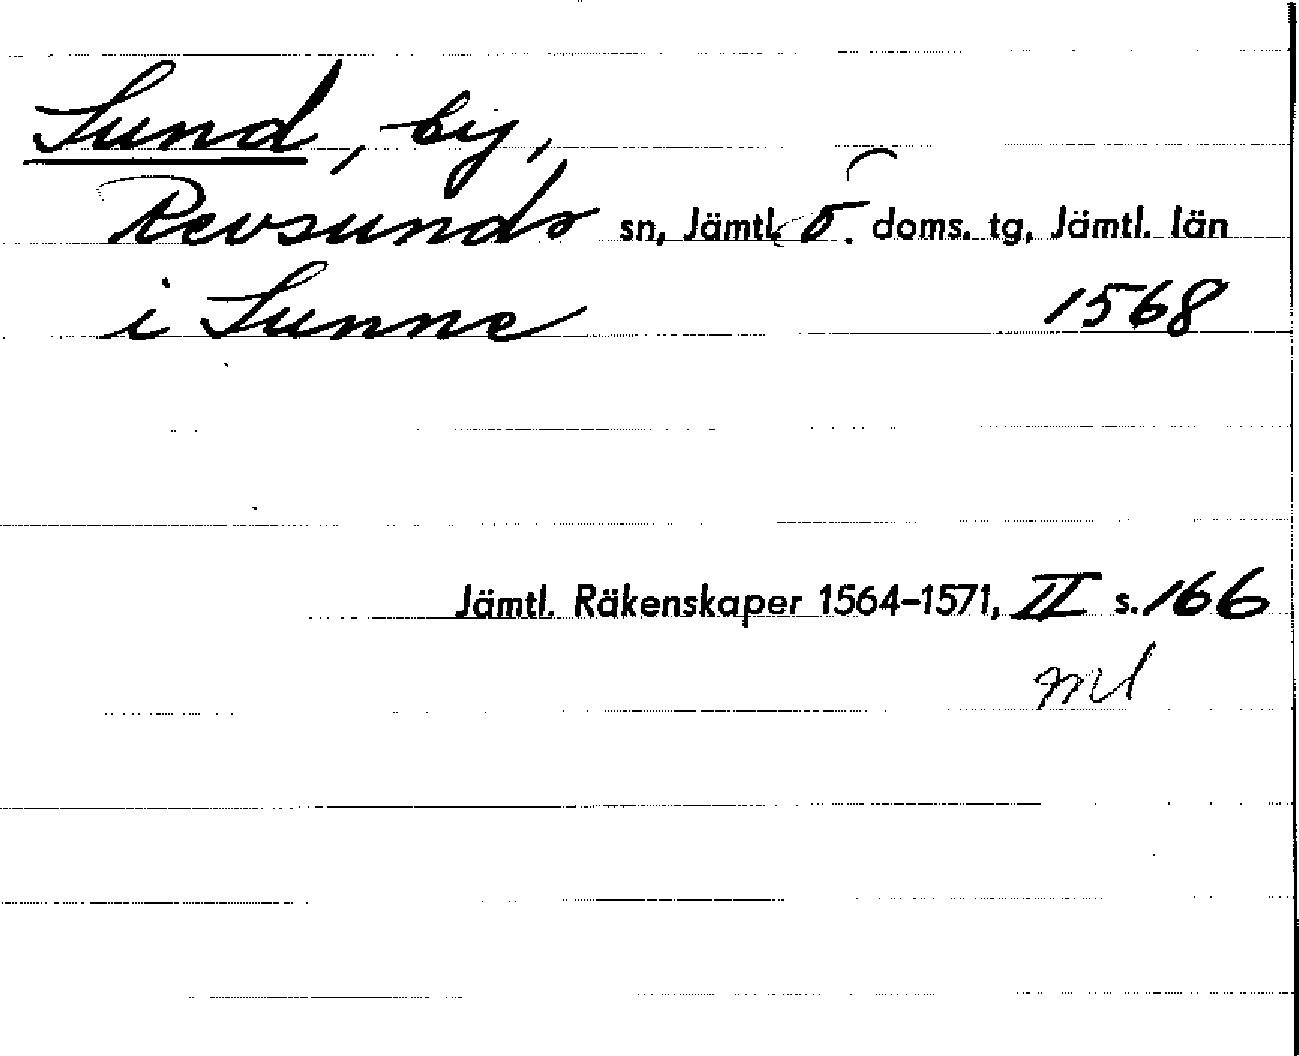 Sund, by,
Revsunds sn, Jämtl. ö. doms. tg, Jämtl. län
i Sunne 1568
Jämtl. Räkenskaper 1564-1571, II s. 166